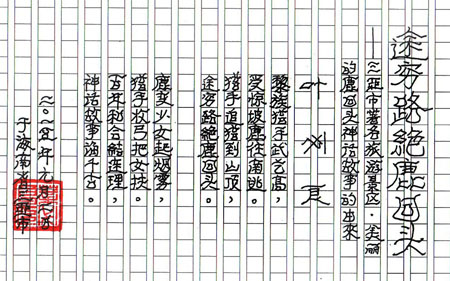 途穷路絕鹿回头
——三亚市著名旅游景区·美丽
的鹿回头神话故事的由來
叶
黎族猎手武艺高，
受惊坡鹿往南逃。
猎手追猎到山顶，
途穷路絕鹿回头。
鹿变少女起烟雾，
猎手收弓把女扶。
百年和合結连理，
神话故事 千古。
于海南省三亚市